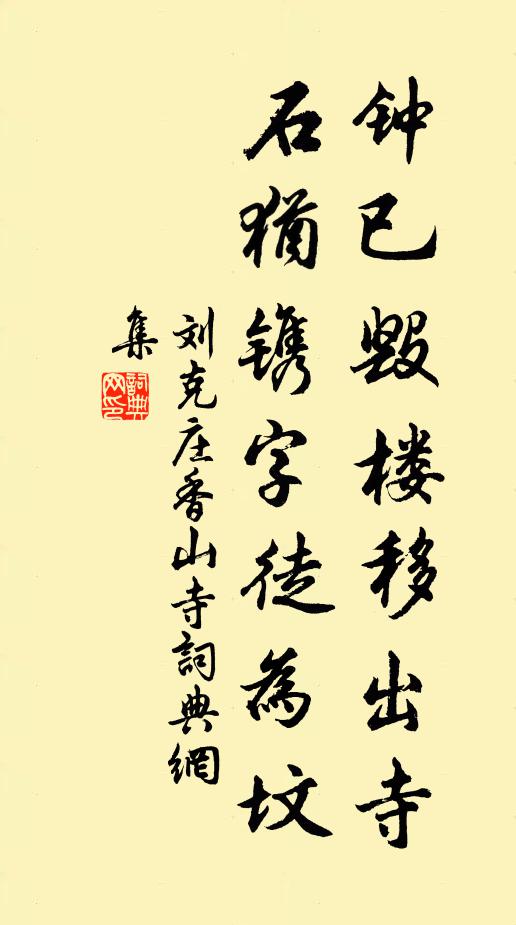 钟已毁楼移出寺
石犹镌字徒為坟
刘克庄香山寺詞典網
集
詞典
网印